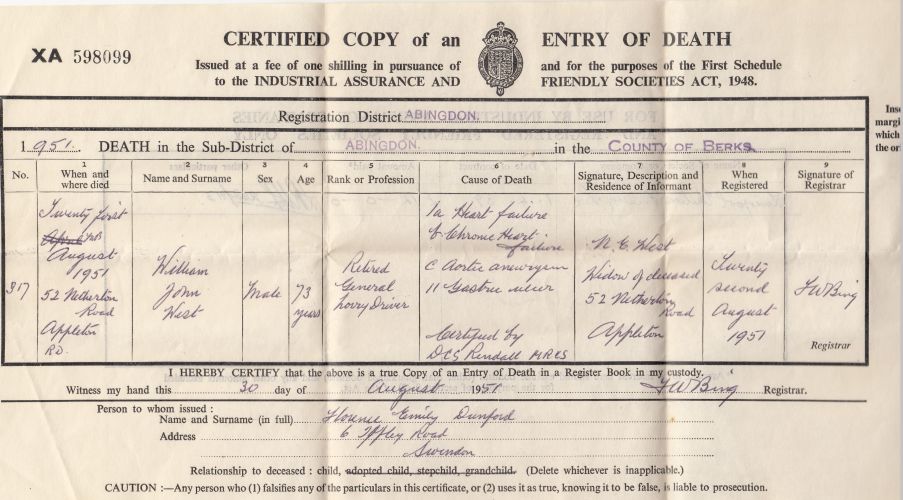 XA 598099
CERTIFIED COPY of an ENTRY OF DEATH
Issued at a fee of one shilling in pursuance of and for the purposes of the First Schedule
to the INDUSTRIAL ASSURANCE AND FRIENDLY SOCIETIES ACT, 1948.
Registration District ABINGDON.
1951. DEATH in the Sub-District of ABINGDON. in the COUNTY OF BERKS.
No.
1 When and where died
2 Name and Surname
3 Sex
4 Age
5 Rank or Profession
6 Cause of Death
7 Signature, Description and Residence of Informant
8 When Registered
9 Signature of Registrar
317
Twenty first
April
August
1951
52 Netherton
Road
Appleton
R.D.
William
John
West
Male
73
years
Retired
General
Lorry Driver
1a Heart failure
b Chronic Heart
failure
c Aortic aneurysm
11 Gastric ulcer
Certified by
DCG Rendall MRCS
N. E. West
Widow of deceased
52 Netherton
Road
Appleton
Twenty
second
August
1951
FW Bing
Registrar
I HEREBY CERTIFY that the above is a true Copy of an Entry of Death in a Register Book in my custody.
Witness my hand this 30 day of August 1951 FW Bing Registrar.
Person to whom issued :
Name and Surname (in full) Florence Emily Dunford
Address 6 Iffley Road
Swindon
Relationship to deceased : child, adopted child, stepchild, grandchild. (Delete whichever is inapplicable.)
CAUTION :—Any person who (1) falsifies any of the particulars in this certificate, or (2) uses it as true, knowing it to be false, is liable to prosecution.
margi
which
the or